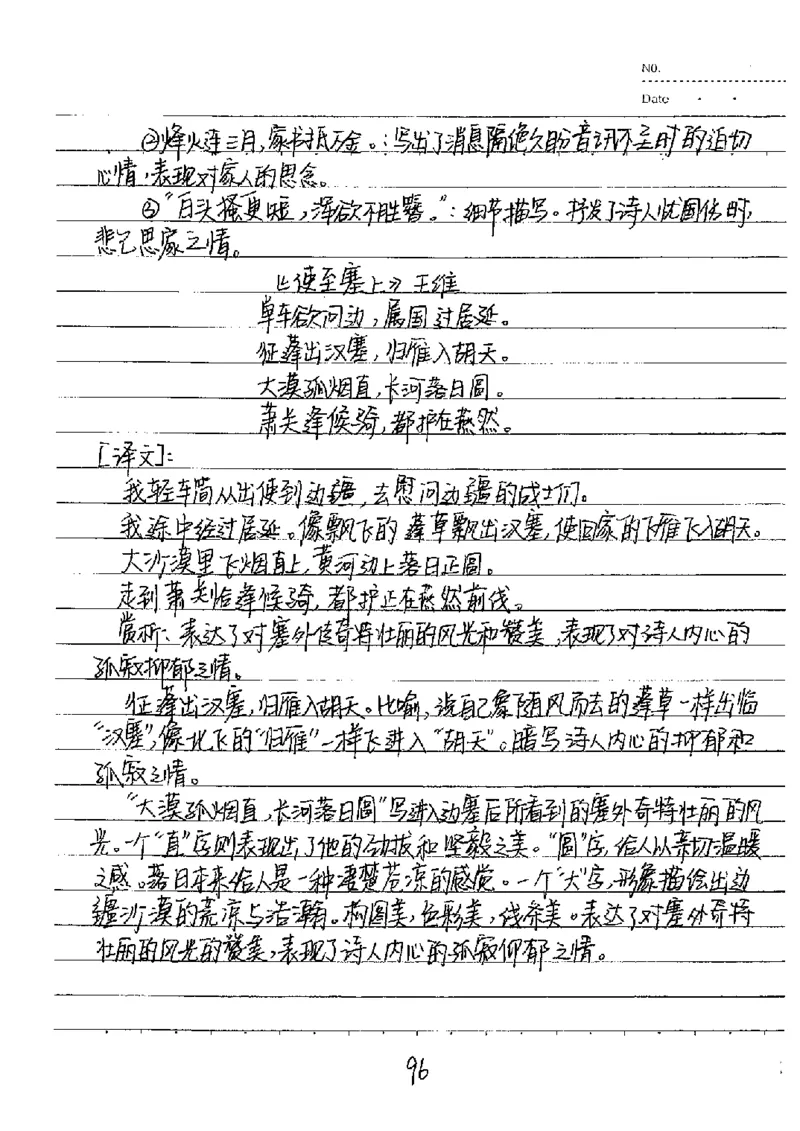 NO.
Date
②烽火连三月,家书抵万金。:写出了消息隔绝久盼音讯不至时的迫切
心情,表现对家人的思念。
③"白头搔更短,浑欲不胜簪。":细节描写。抒发了诗人忧国伤时,
悲己思家之情。
《使至塞上》王维
单车欲问边,属国过居延。
征蓬出汉塞,归雁入胡天。
大漠孤烟直,长河落日圆。
萧关逢候骑,都护在燕然。
[译文]:
我轻车简从出使到边疆,去慰问边疆的战士们。
我途中经过居延。像飘飞的蓬草飘出汉塞,使回家的飞雁飞入胡天。
大沙漠里飞烟直上,黄河边上落日正圆。
走到萧关恰逢候骑,都护正在燕然前线。
赏析:表达了对塞外传奇特壮丽的风光和赞美,表现了对诗人内心的
孤寂抑郁之情。
征蓬出汉塞,归雁入胡天。比喻,说自己象随风而去的蓬草一样出临
"汉塞",像北飞的"归雁"一样飞进入"胡天"。暗写诗人内心的抑郁和
孤寂之情。
"大漠孤烟直,长河落日圆"写进入边塞后所看到的塞外奇特壮丽的风
光。一个"直"字则表现出了他的劲拔和坚毅之美。"圆"字,给人以亲切温暖
之感。落日本来给人是一种凄楚苍凉的感觉。一个"大"字,形象描绘出边
疆沙漠的荒凉与浩瀚。构图美,色彩美,线条美。表达了对塞外奇特
壮丽的风光的赞美,表现了诗人内心的孤寂仰郁之情。
96